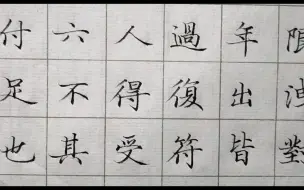 付六人過年限
足不得復出
也其受符皆對